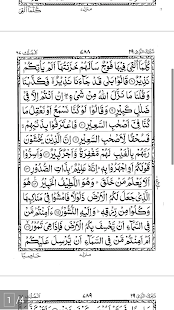 ٤٨٨
كُلَّمَآ اُلْقِيَ فِيْهَا فَوْجٌ سَاَلَهُمْ خَزَنَتُهَآ اَلَمْ يَاْتِكُمْ
نَذِيْرٌ قَالُوْا بَلٰى قَدْ جَآءَنَا نَذِيْرٌ فَكَذَّبْنَا
وَقُلْنَا مَا نَزَّلَ اللّٰهُ مِنْ شَيْءٍ اِنْ اَنْتُمْ اِلَّا فِيْ
ضَلٰلٍ كَبِيْرٍ وَقَالُوْا لَوْ كُنَّا نَسْمَعُ اَوْ نَعْقِلُ مَا
كُنَّا فِيْٓ اَصْحٰبِ السَّعِيْرِ فَاعْتَرَفُوْا بِذَنْۢبِهِمْ
فَسُحْقًا لِّاَصْحٰبِ السَّعِيْرِ اِنَّ الَّذِيْنَ يَخْشَوْنَ
رَبَّهُمْ بِالْغَيْبِ لَهُمْ مَّغْفِرَةٌ وَّاَجْرٌ كَبِيْرٌ وَاَسِرُّوْا
قَوْلَكُمْ اَوِ اجْهَرُوْا بِهٖ اِنَّهٗ عَلِيْمٌۢ بِذَاتِ الصُّدُوْرِ
اَلَا يَعْلَمُ مَنْ خَلَقَ وَهُوَ اللَّطِيْفُ الْخَبِيْرُ هُوَ
الَّذِيْ جَعَلَ لَكُمُ الْاَرْضَ ذَلُوْلًا فَامْشُوْا فِيْ مَنَاكِبِهَا
وَكُلُوْا مِنْ رِّزْقِهٖ وَاِلَيْهِ النُّشُوْرُ ءَاَمِنْتُمْ مَّنْ
فِي السَّمَآءِ اَنْ يَّخْسِفَ بِكُمُ الْاَرْضَ فَاِذَا هِيَ تَمُوْرُ
اَمْ اَمِنْتُمْ مَّنْ فِي السَّمَآءِ اَنْ يُّرْسِلَ عَلَيْكُمْ
حَاصِبًا
٤٨٩
1 / 4